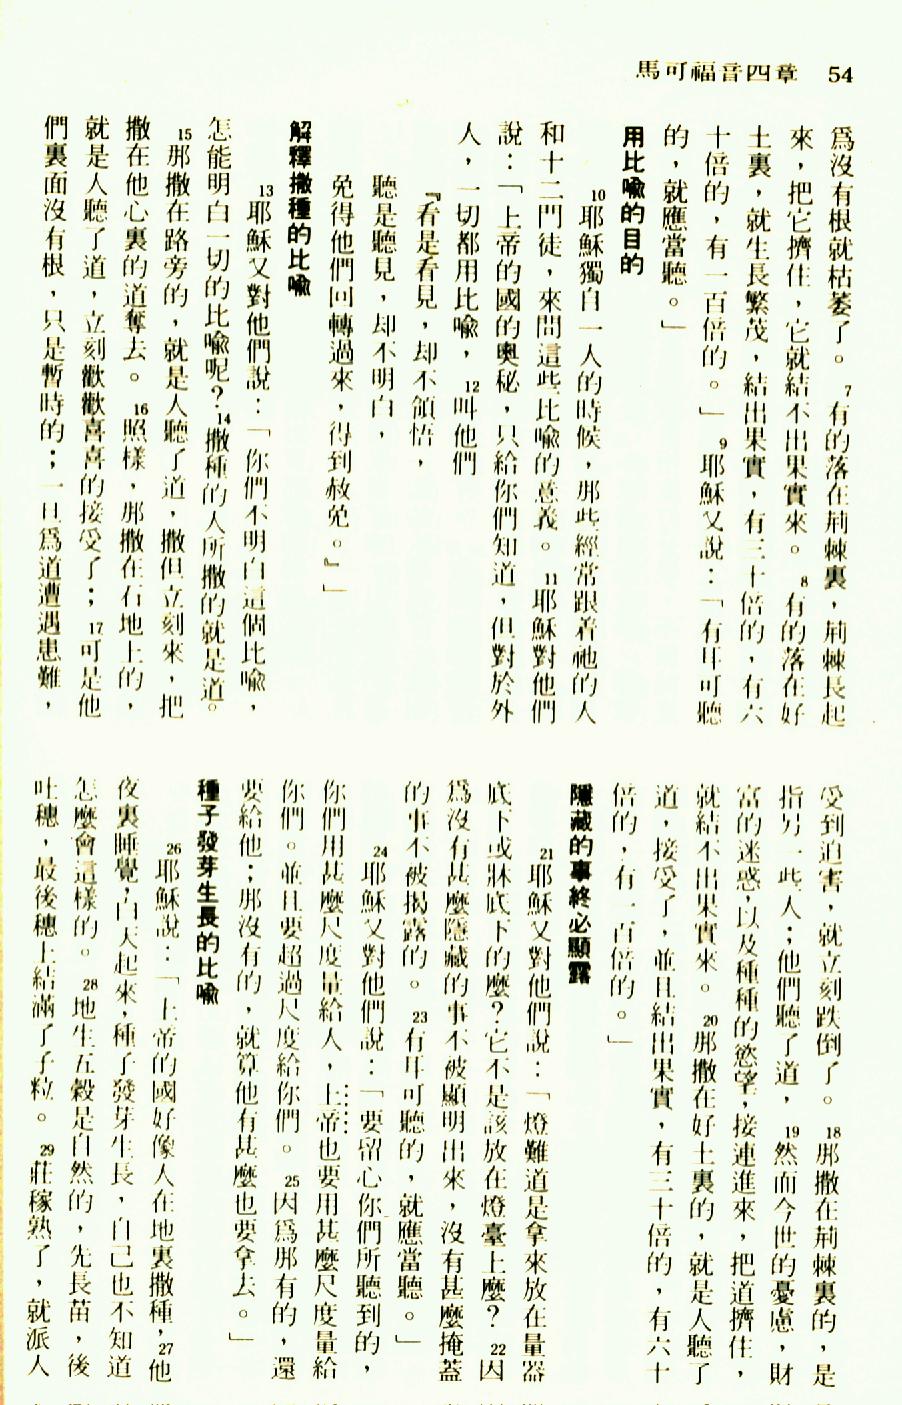 馬可福音四章 54
爲沒有根就枯萎了。 7 有的落在荊棘裏，荊棘長起
來，把它擠住，它就結不出果實來。 8 有的落在好
土裏，就生長繁茂，結出果實，有三十倍的，有六
十倍的，有一百倍的。」 9 耶穌又說：「有耳可聽
的，就應當聽。」
用比喻的目的
10 耶穌獨自一人的時候，那些經常跟着祂的人
和十二門徒，來問這些比喻的意義。 11 耶穌對他們
說：「上帝的國的奧秘，只給你們知道，但對於外
人，一切都用比喻， 12 叫他們
『看是看見，却不領悟，
聽是聽見，却不明白，
免得他們回轉過來，得到赦免。』」
解釋撒種的比喻
13 耶穌又對他們說：「你們不明白這個比喻，
怎能明白一切的比喻呢？ 14 撒種的人所撒的就是道。
15 那撒在路旁的，就是人聽了道，撒但立刻來，把
撒在他心裏的道奪去。 16 照樣，那撒在石地上的，
就是人聽了道，立刻歡歡喜喜的接受了； 17 可是他
們裏面沒有根，只是暫時的；一旦爲道遭遇患難，
受到迫害，就立刻跌倒了。 18 那撒在荊棘裏的，是
指另一些人；他們聽了道， 19 然而今世的憂慮，財
富的迷惑，以及種種的慾望，接連進來，把道擠住，
就結不出果實來。 20 那撒在好土裏的，就是人聽了
道，接受了，並且結出果實，有三十倍的，有六十
倍的，有一百倍的。」
隱藏的事終必顯露
21 耶穌又對他們說：「燈難道是拿來放在量器
底下或牀底下的麼？它不是該放在燈臺上麼？ 22 因
爲沒有甚麼隱藏的事不被顯明出來，沒有甚麼掩蓋
的事不被揭露的。 23 有耳可聽的，就應當聽。」
24 耶穌又對他們說：「要留心你們所聽到的，
你們用甚麼尺度量給人，上帝也要用甚麼尺度量給
你們。並且要超過尺度給你們。 25 因爲那有的，還
要給他；那沒有的，就算他有甚麼也要拿去。」
種子發芽生長的比喻
26 耶穌說：「上帝的國好像人在地裏撒種， 27 他
夜裏睡覺，白天起來，種子發芽生長，自己也不知道
怎麼會這樣的。 28 地生五穀是自然的，先長苗，後
吐穗，最後穗上結滿了子粒。 29 莊稼熟了，就派人